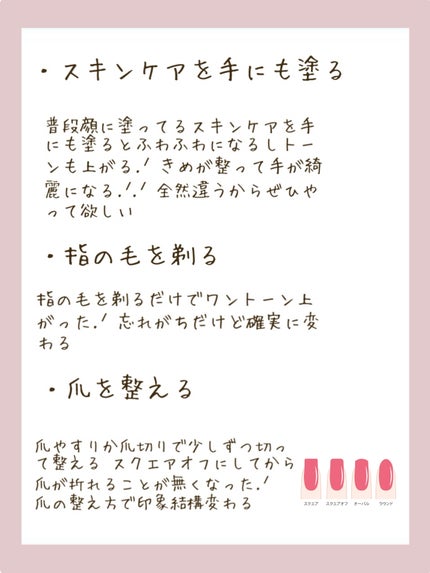 ・スキンケアを手にも塗る
普段顔に塗ってるスキンケアを手
にも塗るとふわふわになるしトー
ンも上がる.ᐟ きめが整って手が綺
麗になる.ᐟ.ᐟ 全然違うからぜひや
って欲しい
・指の毛を剃る
指の毛を剃るだけでワントーン上
がった.ᐟ 忘れがちだけど確実に変
わる
・爪を整える
爪やすりか爪切りで少しずつ切っ
て整える スクエアオフにしてから
爪が折れることが無くなった.ᐟ
爪の整え方で印象結構変わる
スクエア スクエアオフ オーバル ラウンド